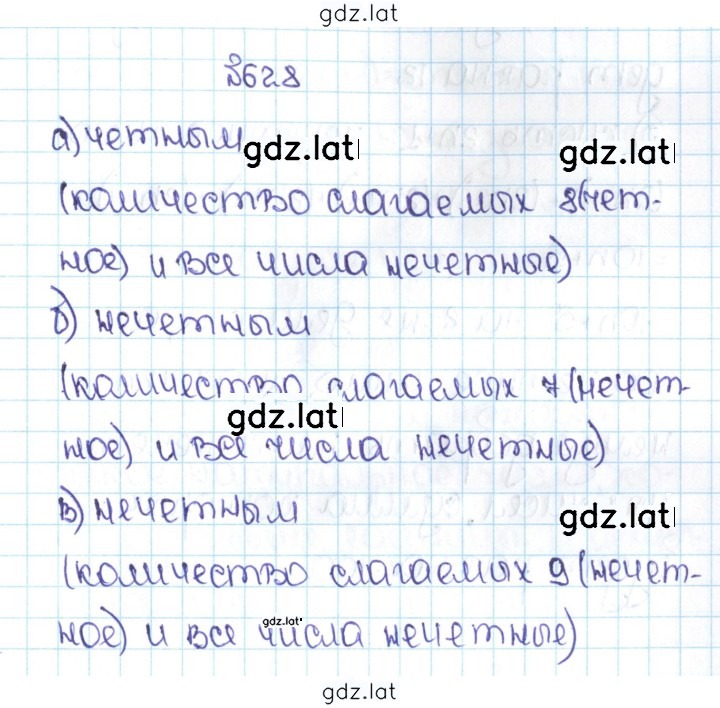 gdz.lat
№628
а) четным
gdz.lat
gdz.lat
(количество слагаемых 8(чет-
ное) и все числа нечетные)
б) нечетным
(количество слагаемых 7(нечет-
gdz.lat
ное) и все числа нечетные)
в) нечетным
gdz.lat
(количество слагаемых 9(нечет-
gdz.lat
ное) и все числа нечетные)
gdz.lat